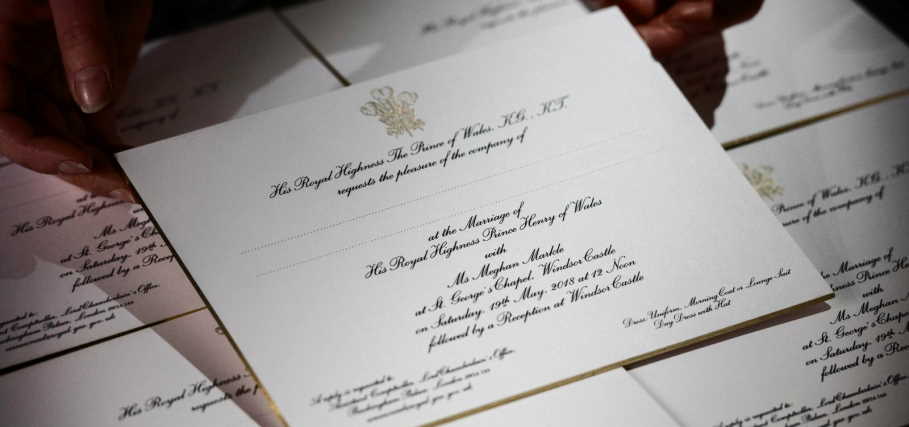 His Royal Highness The Prince of Wales, K.G., K.T.
requests the pleasure of the company of
at the Marriage of
His Royal Highness Prince Henry of Wales
with
Ms Meghan Markle
at St. George's Chapel, Windsor Castle
on Saturday, 19th May, 2018 at 12 Noon
followed by a Reception at Windsor Castle
Dress: Uniform, Morning Coat or Lounge Suit
Day Dress with Hat
A reply is requested to:
Lord Chamberlain's Office,
Buckingham Palace, London
His Royal Highness
at the
Ms M
at St. George's
on Saturday, 19th
followed by a Recep
Lord Chamberlain's Office,
His Royal Highness
requests the
Prince of Wales, K.G., K
of the company of
the Marriage of
ness Prince Hen
with
Ms Meghan M
at St. George's Chape
on Saturday, 19th M
followed by a Rec
A reply is requested to:
Lord Chamberlain's Office,
Buckingham Palace, London